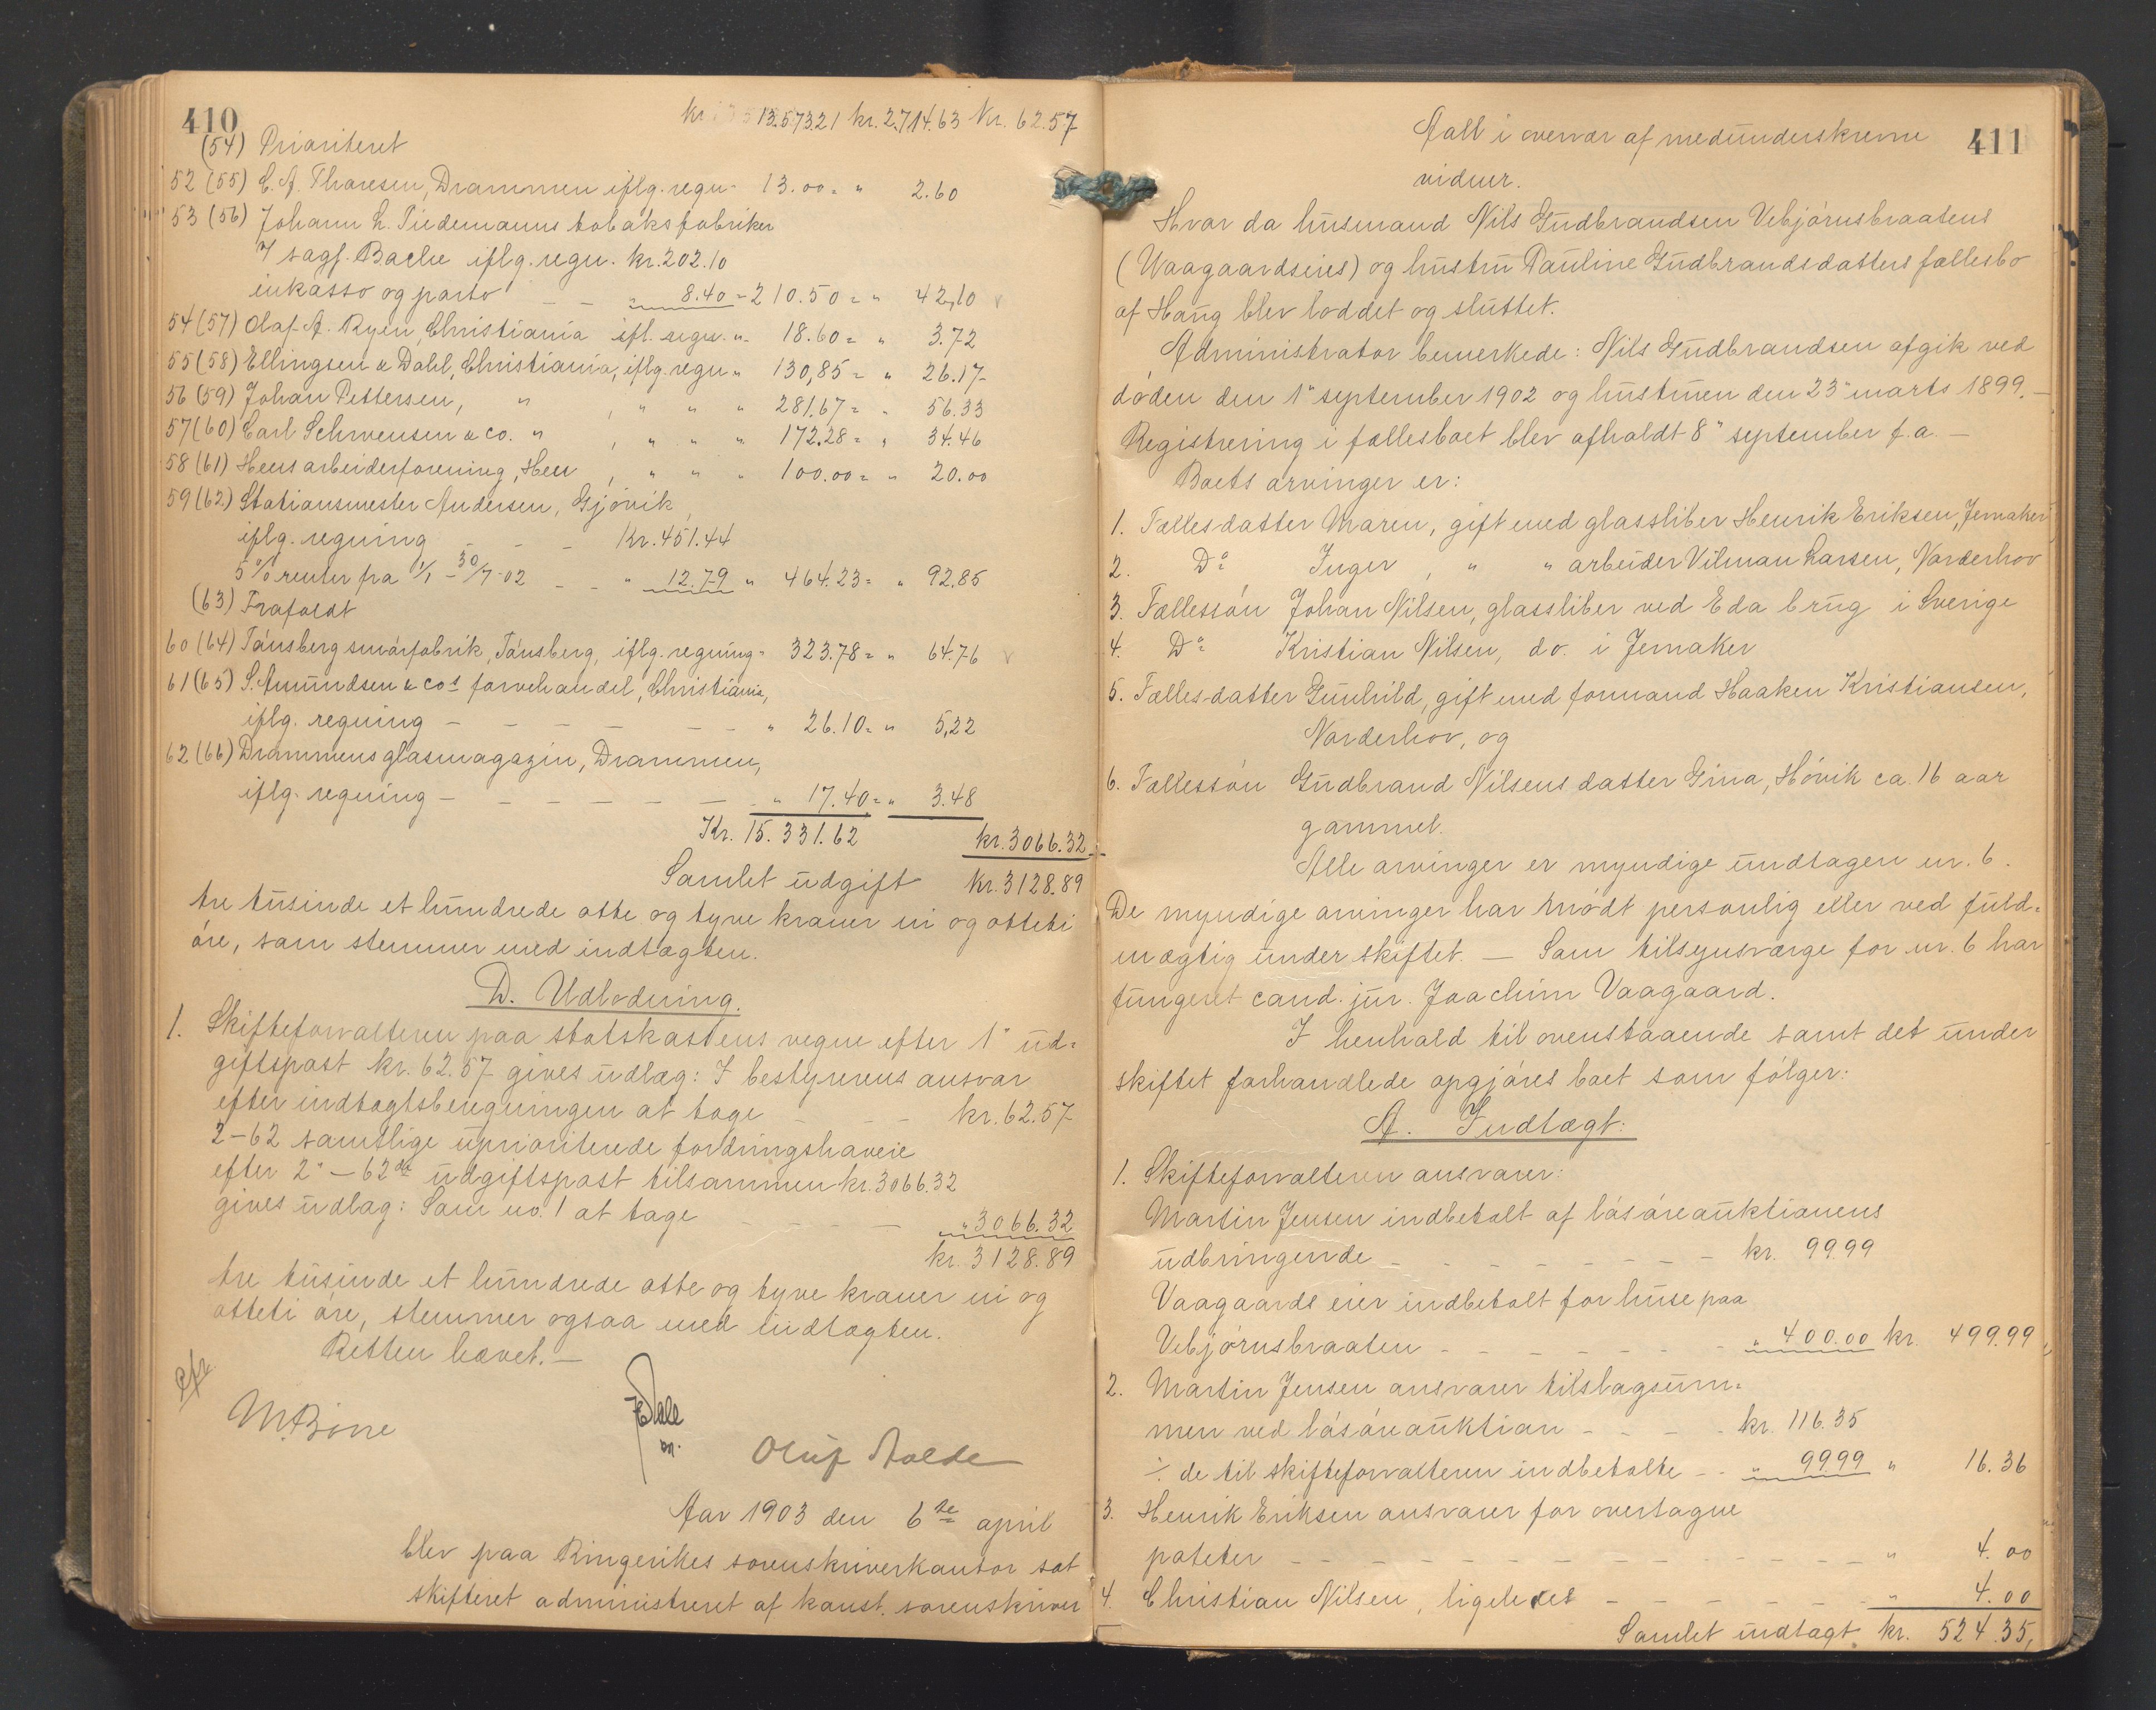 410
kr. 13.573.21 kr. 2.714.63 Kr. 62.57
(54) Prioriteret
52 (55) C. A. Thoresen, Drammen iflg. regn. 13.00 = " 2.60
53 (56) Johann H. Tiedemanns tobaksfabriker
v/ sagf. Bache iflg. regn. kr. 202.10
inkasso og porto - - " 8.40 = 210.50 = " 42,10 v
54 (57) Olaf A. Ryen, Christiania ifl. regn. " 18.60 = " 3.72
55 (58) Ellingsen & Dahl, Christiania, iflg. regn " 130,85 = " 26.17
56 (59) Johan Pettersen, " , " " " 281.67 = " 56.33
57 (60) Carl Schwensen & Co. " , " " " 172.28 = " 34.46
58 (61) Hens arbeiderforening, Hen , " " " 100.00 = " 20.00
59 (62) Stationsmester Andersen, Gjövik,
iflg. regning - - - Kr. 451.44
5 % renter fra 1/1 - 30/7-02 - - " 12.79 " 464.23 = " 92.85
(63) Frafaldt
60 (64) Tönsberg smörfabrik, Tönsberg, iflg. regning " 323.78 = " 64.76 v
61 (65) S. Amundsen & Cos farvehandel, Christiania,
iflg. regning - - - - - - " 26.10 = " 5,22
62 (66) Drammens glasmagazin, Drammen,
iflg. regning - - - - - - - " 17.40 = " 3.48
Kr. 15.331.62 kr. 3066.32
Samlet udgift kr. 3128.89
tre tusinde et hundrede otte og tyve kroner ni og otteti
öre, som stemmer med indtægten.
D. Udlodning.
1. Skifteforvalteren paa statskassens vegne efter 1" ud-
giftspost kr. 62.57 gives udlæg: I bestyrerens ansvar
efter indtægtsberegningen at tage - - kr. 62.57
2-62 samtlige uprioriterede fordringshavere
efter 2" - 62de udgiftspost tilsammen kr. 3066.32
gives udlæg: Som no. 1 at tage - - - - " 3066.32
kr. 3128.89
tre tusinde et hundrede otte og tyve kroner ni og
otteti öre, stemmer ogsaa med indtægten.
Retten hævet. -
Olaf Aalde
Aar 1903 den 6te april
blev paa Ringerikes sorenskriverkontor sat
skifteret administreret af konst. sorenskriver
411
Aall i overvær af medunderskrevne
vidner.
Hvor da husmand Nils Gudbrandsen Vebjörnsbraatens
(Vaagaardseies) og hustru Pauline Gudbrandsdatters fællesbo
af Haug blev loddet og sluttet.
Administrator bemerkede: Nils Gudbrandsen afgik ved
döden den 1" september 1902 og hustruen den 23" marts 1899. -
Registrering i fællesboet blev afholdt 8" september f.a. -
Boets arvinger er:
1. Fællesdatter Maren, gift med glassliber Henrik Eriksen, Jernaker
2. Do Inger , " " arbeider Vilman Larsen, Norderhov
3. Fællessön Johan Nilsen, glassliber ved Eda brug i Sverige
4. Do Kristian Nilsen, do. i Jernaker
5. Fællesdatter Gunhild, gift med formand Haaken Kristiansen,
Norderhov, og
6. Fællessön Gudbrand Nilsens datter Gina, Hövik ca. 16 aar
gammel.
Alle arvinger er myndige undtagen nr. 6.
De myndige arvinger har mödt personlig eller ved fuld-
mægtig under skiftet. - Som tilsynsværge for nr. 6 har
fungeret cand. jur. Joachim Vaagaard.
I henhold til ovenstaaende samt det under
skiftet forhandlede opgjöres boet som fölger:
A. Indtægt:
1. Skifteforvalteren ansvarer:
Martin Jensen indbetalt af lösöreauktionens
udbringende - - - - - - - kr. 99.99
Vaagaards eier indbetalt for huse paa
Vebjörnsbraaten - - - - - - - " 400.00 kr. 499.99
2. Martin Jensen ansvarer tilslagsum-
men ved lösöreauktion - - - - kr. 116.35
÷ de til skifteforvalteren indbetalte - - " 99.99 " 16.36
3. Henrik Eriksen ansvarer for overtagne
poteter - - - - - - - - - - - - - " 4.00
4. Christian Nilsen, ligeledes - - - - - - " 4.00
Samlet indtægt kr. 524.35,